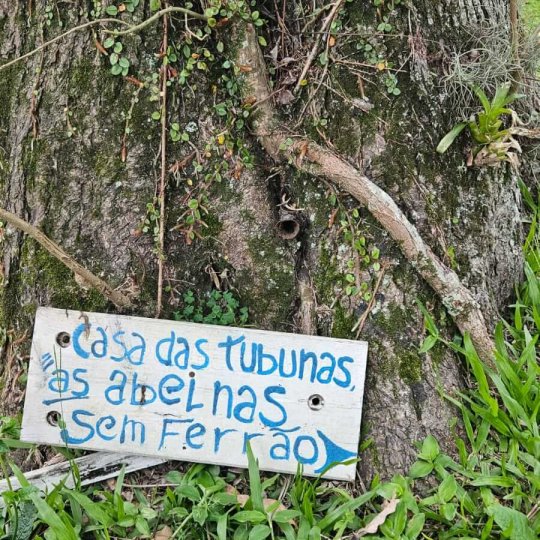 Casa das Tubunas,
"as abelnas
Sem Ferrão